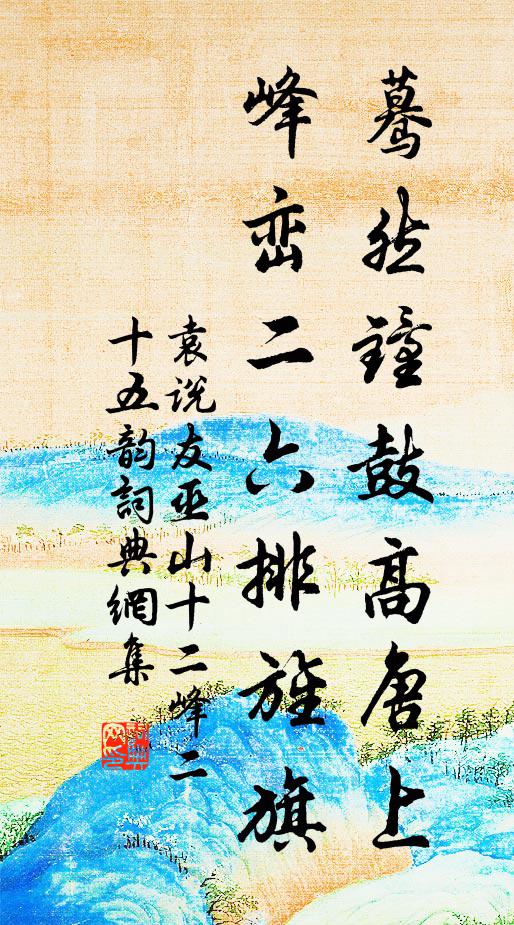 驀然鐘鼓高唐上
峰峦二六排旌旗
袁说友巫山十二峰二
十五韵詞典網集